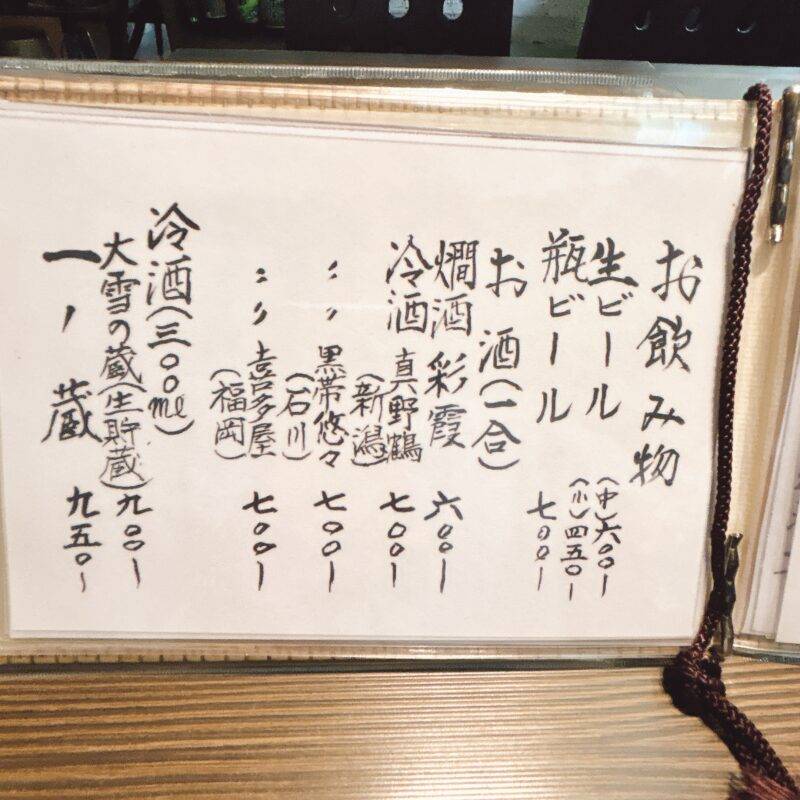 お飲み物
生ビール (中)六〇〇ー
(小)四五〇ー
瓶ビール 七〇〇ー
お酒(一合)
燗酒 彩霞 六〇〇ー
冷酒 真野鶴 七〇〇ー
(新潟)
〃 黒帯悠々 七〇〇ー
(石川)
〃 喜多屋 七〇〇ー
(福岡)
冷酒(三〇〇ml)
大雪の蔵(生貯蔵) 九〇〇ー
一ノ蔵 九五〇ー